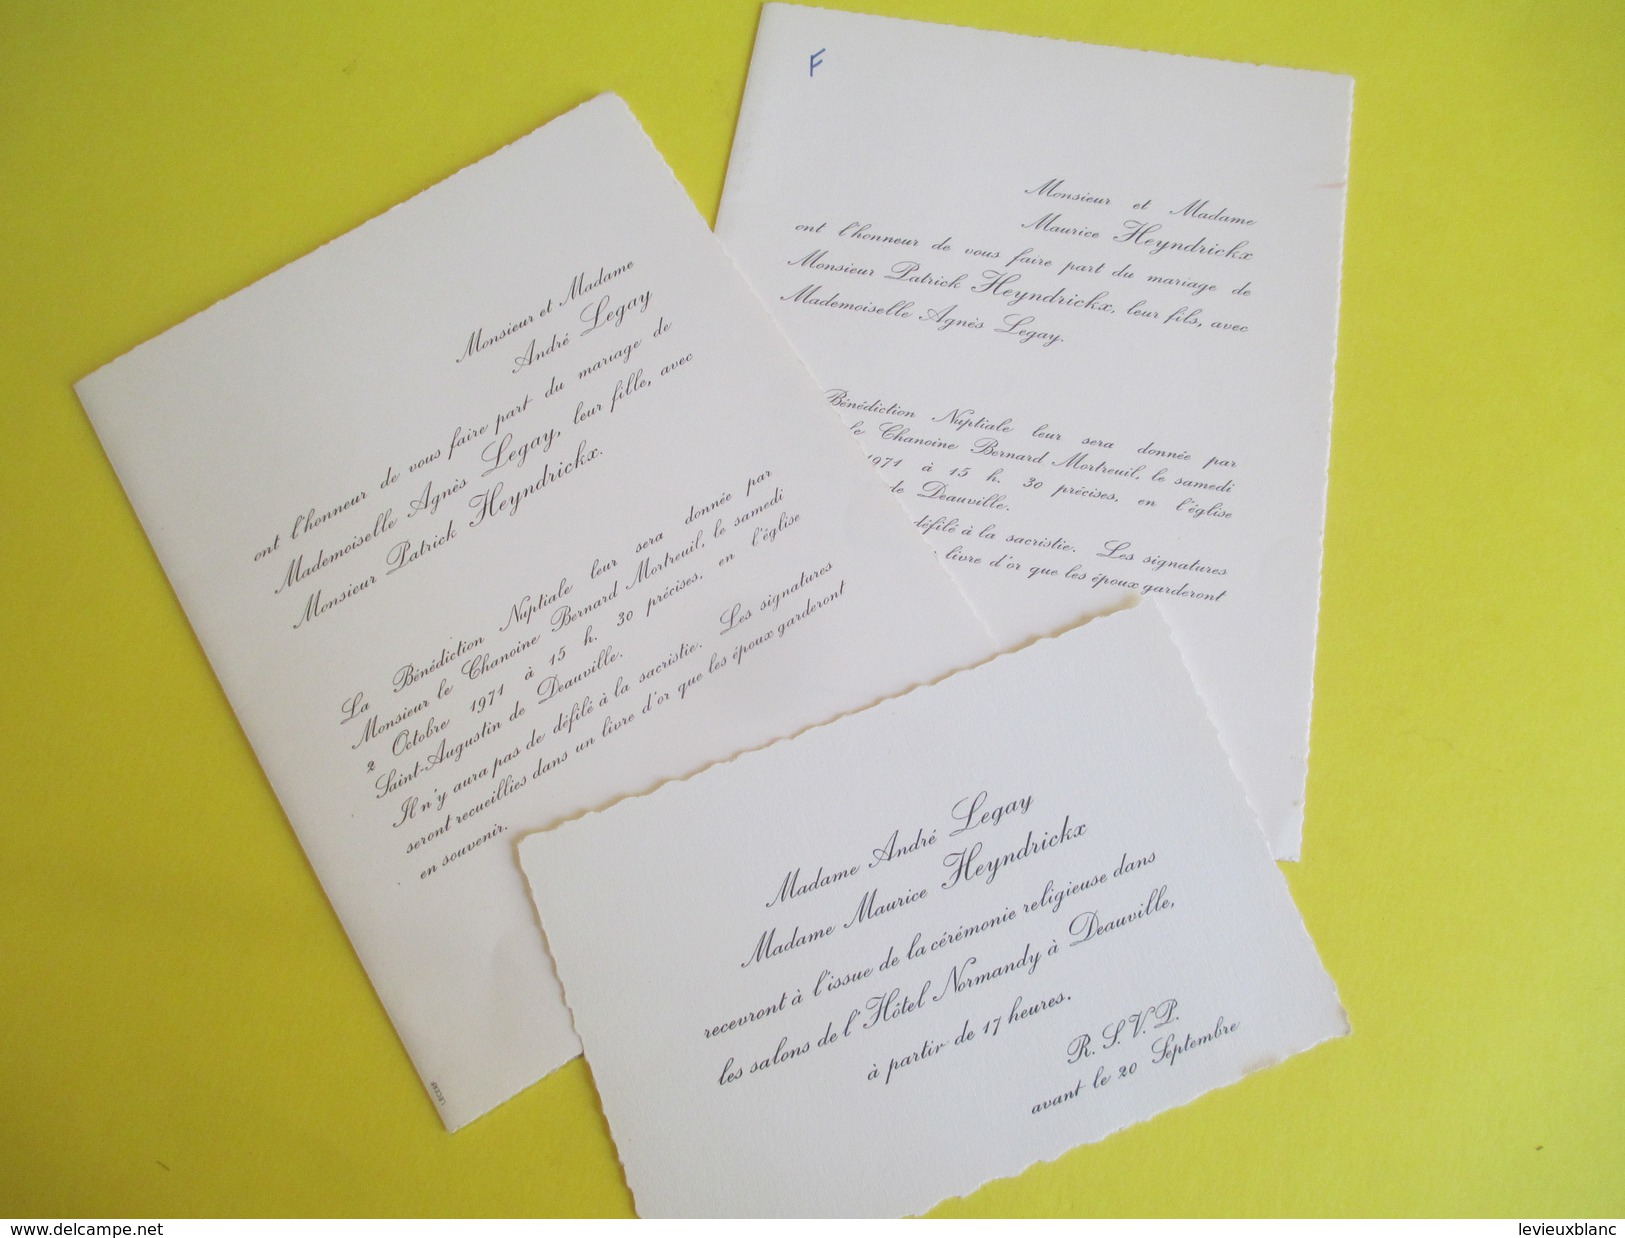 Monsieur et Madame
André Legay
ont l'honneur de vous faire part du mariage de
Mademoiselle Agnès Legay, leur fille, avec
Monsieur Patrick Heyndrickx.
La Bénédiction Nuptiale leur sera donnée par
Monsieur le Chanoine Bernard Mortreuil, le samedi
2 Octobre 1971 à 15 h. 30 précises, en l'église
Saint-Augustin de Deauville.
Il n'y aura pas de défilé à la sacristie. Les signatures
seront recueillies dans un livre d'or que les époux garderont
en souvenir.
F
Monsieur et Madame
Maurice Heyndrickx
ont l'honneur de vous faire part du mariage de
Monsieur Patrick Heyndrickx, leur fils, avec
Mademoiselle Agnès Legay.
Bénédiction Nuptiale leur sera donnée par
le Chanoine Bernard Mortreuil, le samedi
1971 à 15 h. 30 précises, en l'église
de Deauville.
défilé à la sacristie. Les signatures
livre d'or que les époux garderont
Madame André Legay
Madame Maurice Heyndrickx
recevront à l'issue de la cérémonie religieuse dans
les salons de l'Hôtel Normandy à Deauville,
à partir de 17 heures.
R. S. V. P.
avant le 20 Septembre
www.delcampe.net
levieuxblanc